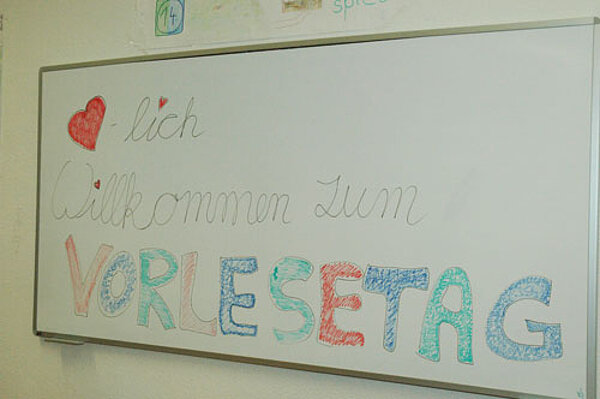 14
❤-lich
Willkommen zum
VORLESETAG